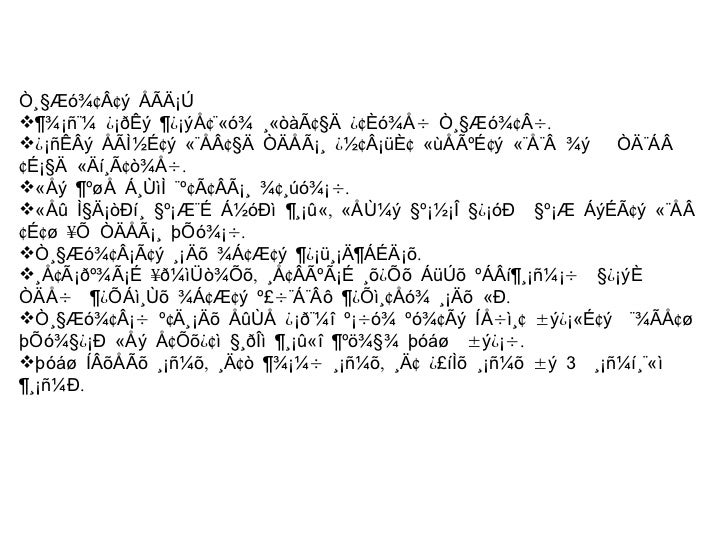 Ò¸§Æó¾¢Â¢ý ÅÃÄ¡Ú
❖¶¾¡ñ¨¼ ¿¡ðÊý ¶¿¡ýÅ¢¨«ó¾ ¸«òàÃ¢§Ä ¿¢Èó¾Å÷ Ò¸§Æó¾¢Â÷.
❖¿¡ñÊÂý ÅÃÌ½É¢ý «¨ÅÂ¢§Ä ÒÄÅÃ¡¸ ¿½¢Â¡üÈ¢ «ùÅÃºÉ¢ý «¨Å¨Â ¾ý ÒÄ¨ÁÂ
¢É¡§Ä «Äí¸Ã¢ò¾Å÷.
❖«Åý ¶ºøÅ Á¸ÙìÌ ¨º¢Ã¢ÂÃ¡¸ ¾¢¸úó¾¡÷.
❖«Åû Ì§Ä¡òÐí¸ §º¡Æ¨É Á½óÐì ¶¸¡û«, «ÅÙ¼ý §º¡½¡Î §¿¡óÐ §º¡Æ ÁýÉÃ¢ý «¨ÅÂ
¢É¢ø ¥Õ ÒÄÅÃ¡¸ þÕó¾¡÷.
❖Ò¸§Æó¾¢Â¡Ã¢ý ¸¡Äõ ¾Á¢Æ¢ý ¶¿¡ü¸¡Ä¶ÁÉÄ¡õ.
❖¸Å¢Ã¡ðº¾Ã¡É ¥ð¼ìÜò¾Õõ, ¸Å¢ÂÃºÃ¡É ¸õ¿Õõ ÁüÚõ ºÁÂí¶¸¡ñ¼¡÷ §¿¡ýÈ
ÒÄÅ÷ ¶¿ÕÁì¸Ùõ ¾Á¢Æ¢ý º£÷¨Á¨Âô ¶¿Õì¸¢Åó¾ ¸¡Äõ «Ð.
❖Ò¸§Æó¾¢Â¡÷ º¢Ä¸¡Äõ ÅûÙÅ ¿¡ð¨¼î º¡÷ó¾ ºó¾¢Ãý ÍÅ÷ì¸¢ ±ý¿¡«É¢ý ¨¾ÃÅ¢ø
þÕó¾§¿¡Ð «Åý Å¢Õõ¿¢ì §¸ðÎì ¶¸¡û«î ¶ºö¾§¾ þóáø ±ý¿¡÷.
❖þóáø ÍÂõÅÃõ ¸¡ñ¼õ, ¸Ä¢ò ¶¾¡¼÷ ¸¡ñ¼õ, ¸Ä¢ ¿£íÌõ ¸¡ñ¼õ ±ý 3 ¸¡ñ¼í¸¨«ì
¶¸¡ñ¼Ð.